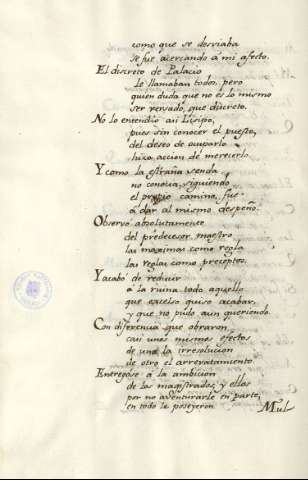 como que se desviaba
se fue acercando a mi afecto.
El discreto de Palacio
le llamaban todos, pero
quien duda que no es lo mismo
ser versado, que discreto.
No lo entendio asi Lisipo,
pues sin conocer el puesto,
del deseo de ocuparlo
hizo accion de merecerlo.
Y como la estraña senda
no conocia, siguiendo
el propio camino, fue
a dar al mismo despeño.
Observó absolutamente
del predecesor maestro
las maximas como regla
las reglas como preceptos.
Y acabó de reducir
a la ruina todo aquello
que excelso quiso acabar,
y que no pudo aun queriendo.
Con diferencia que obraron,
casi unos mismos efectos
de uno la irresolucion
de otro el arrevatamiento
Entregose a la ambicion
de los magistrados, y ellos
por no aventurarle en parte,
en todo le poseyeron
Mul